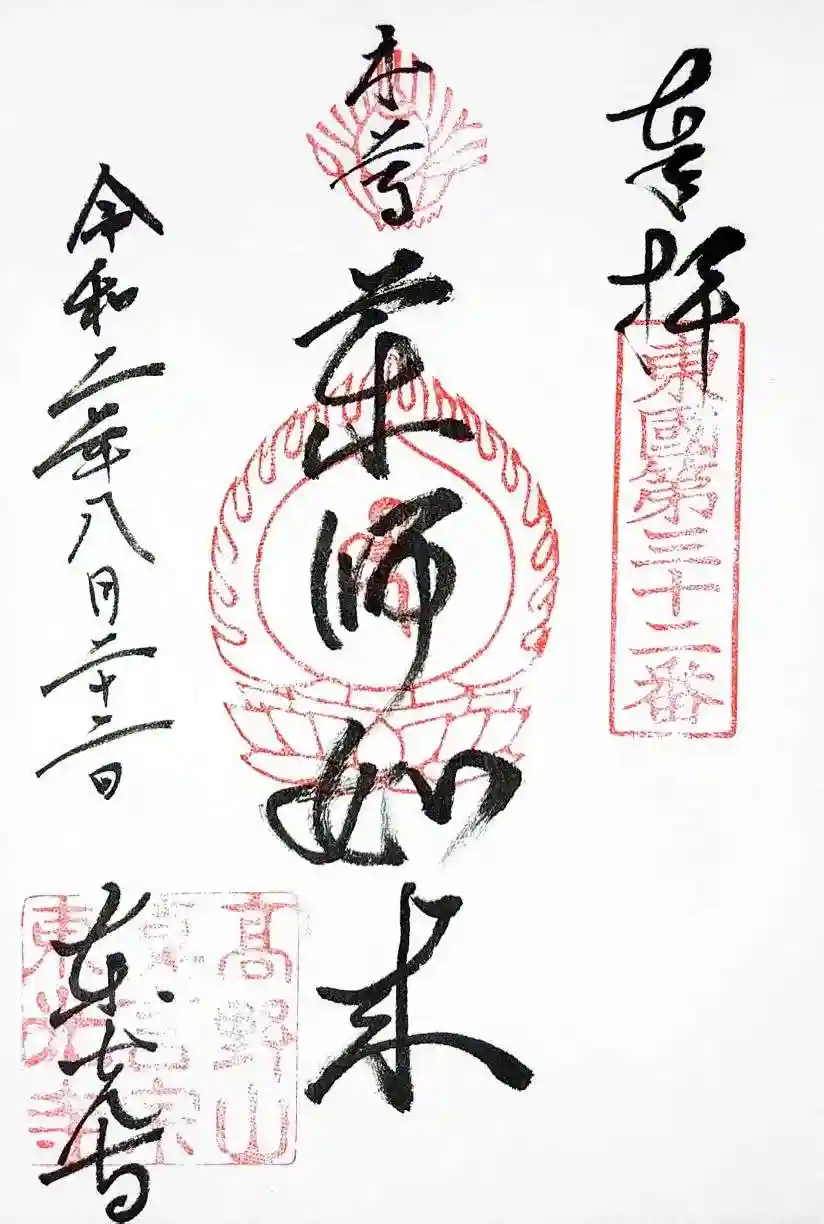 奉拝
東國第三十二番
本尊
薬師如来
令和二年八月二十二日
東光寺
高野山
真言宗
東光寺